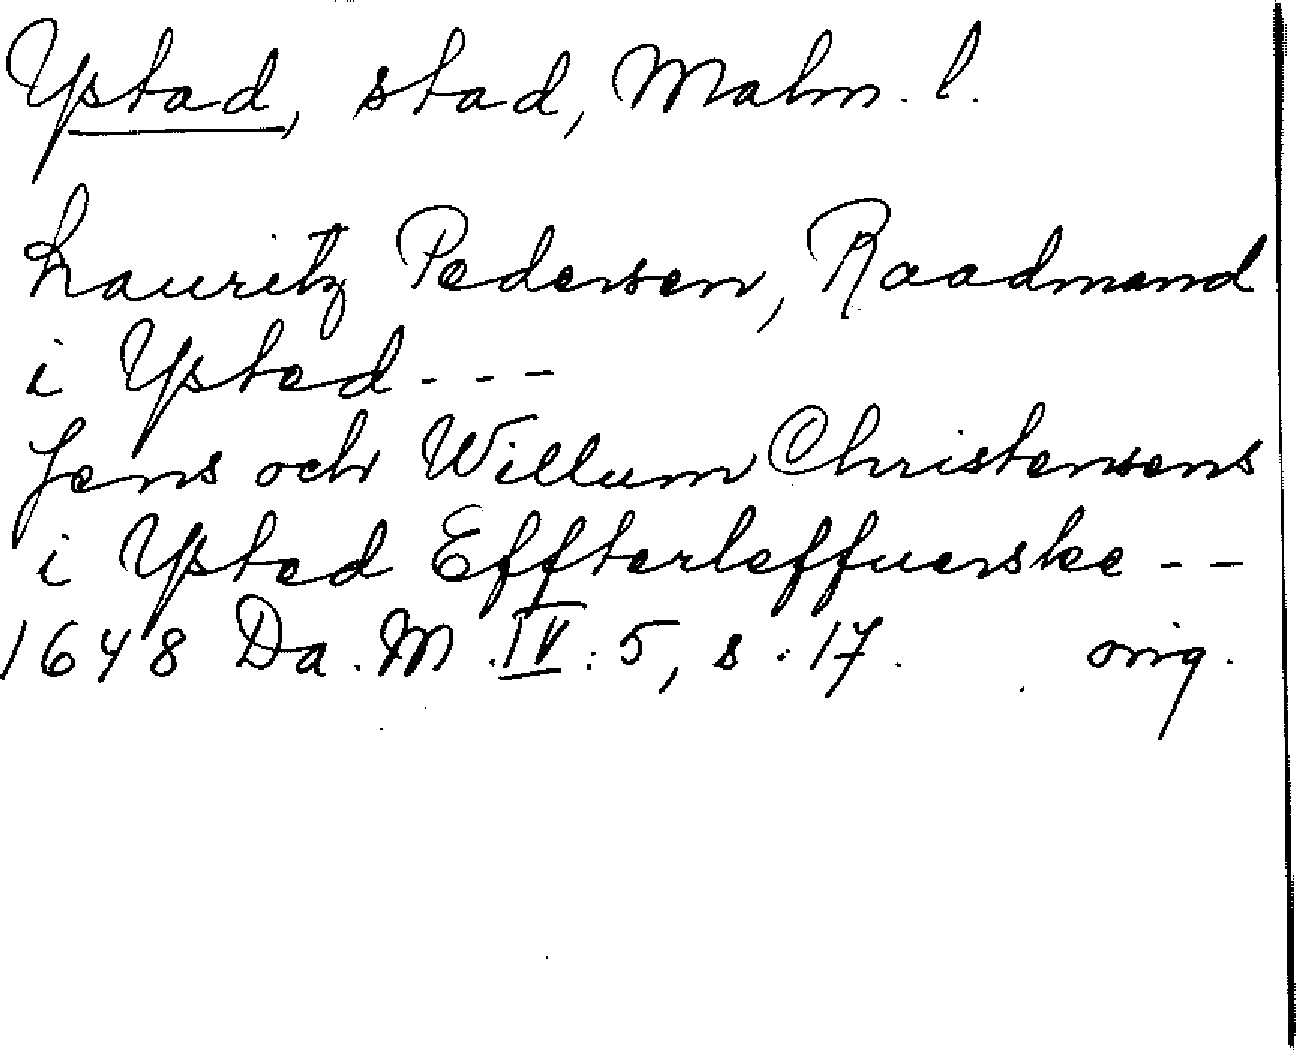 Ystad, stad, Malm. l.
Lauritz Pedersen, Raadmand
i Ysted - - -
Jens och Willum Christensens
i Ysted Effterleffuerske - -
1648 Da. M. IV: 5, s. 17. orig.